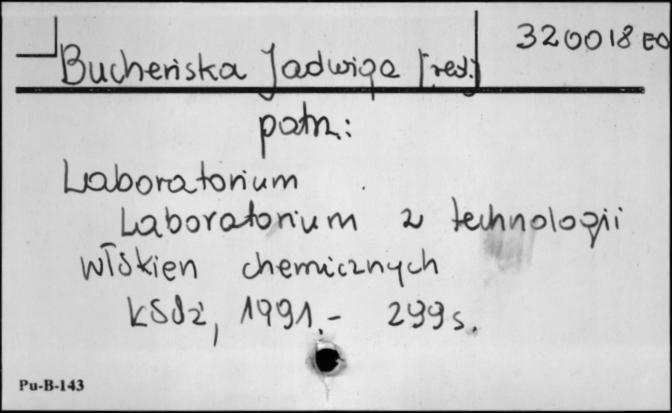 320018 EO
Bucheńska Jadwiga [red.]
patrz:
Laboratorium
Laboratorium z technologii
włókien chemicznych
Łódź, 1991.- 299s.
Pu-B-143